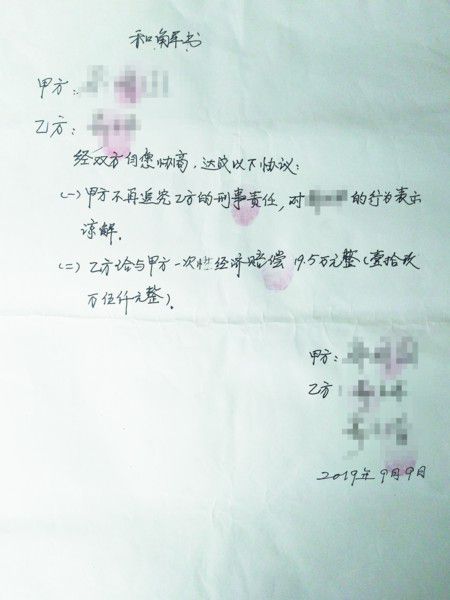 和解书
甲方：
乙方：
经双方自愿协商，达成以下协议：
(一)甲方不再追究乙方的刑事责任，对 的行为表示
谅解。
(二)乙方给与甲方一次性经济赔偿 19.5万元整(壹拾玖
万伍仟元整)。
甲方：
乙方：
2019年9月9日